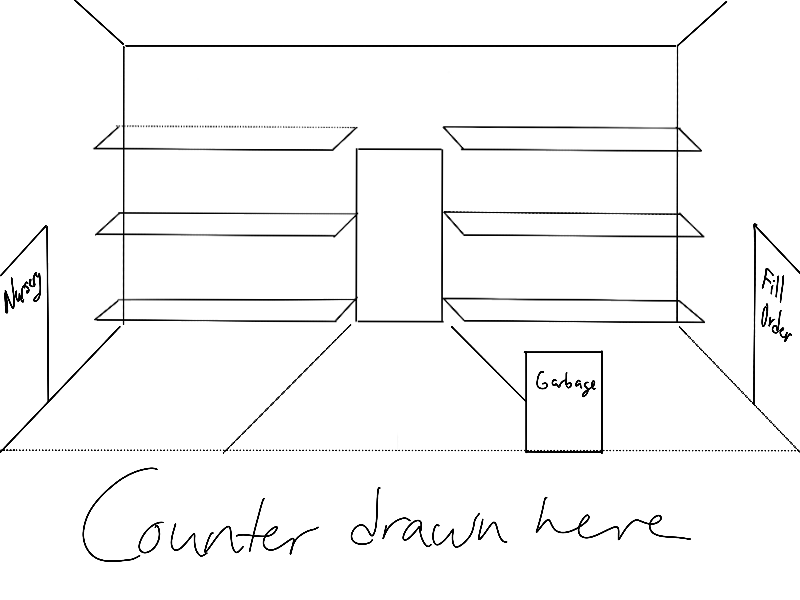 Nursery
Fill
Order
Garbage
Counter drawn here